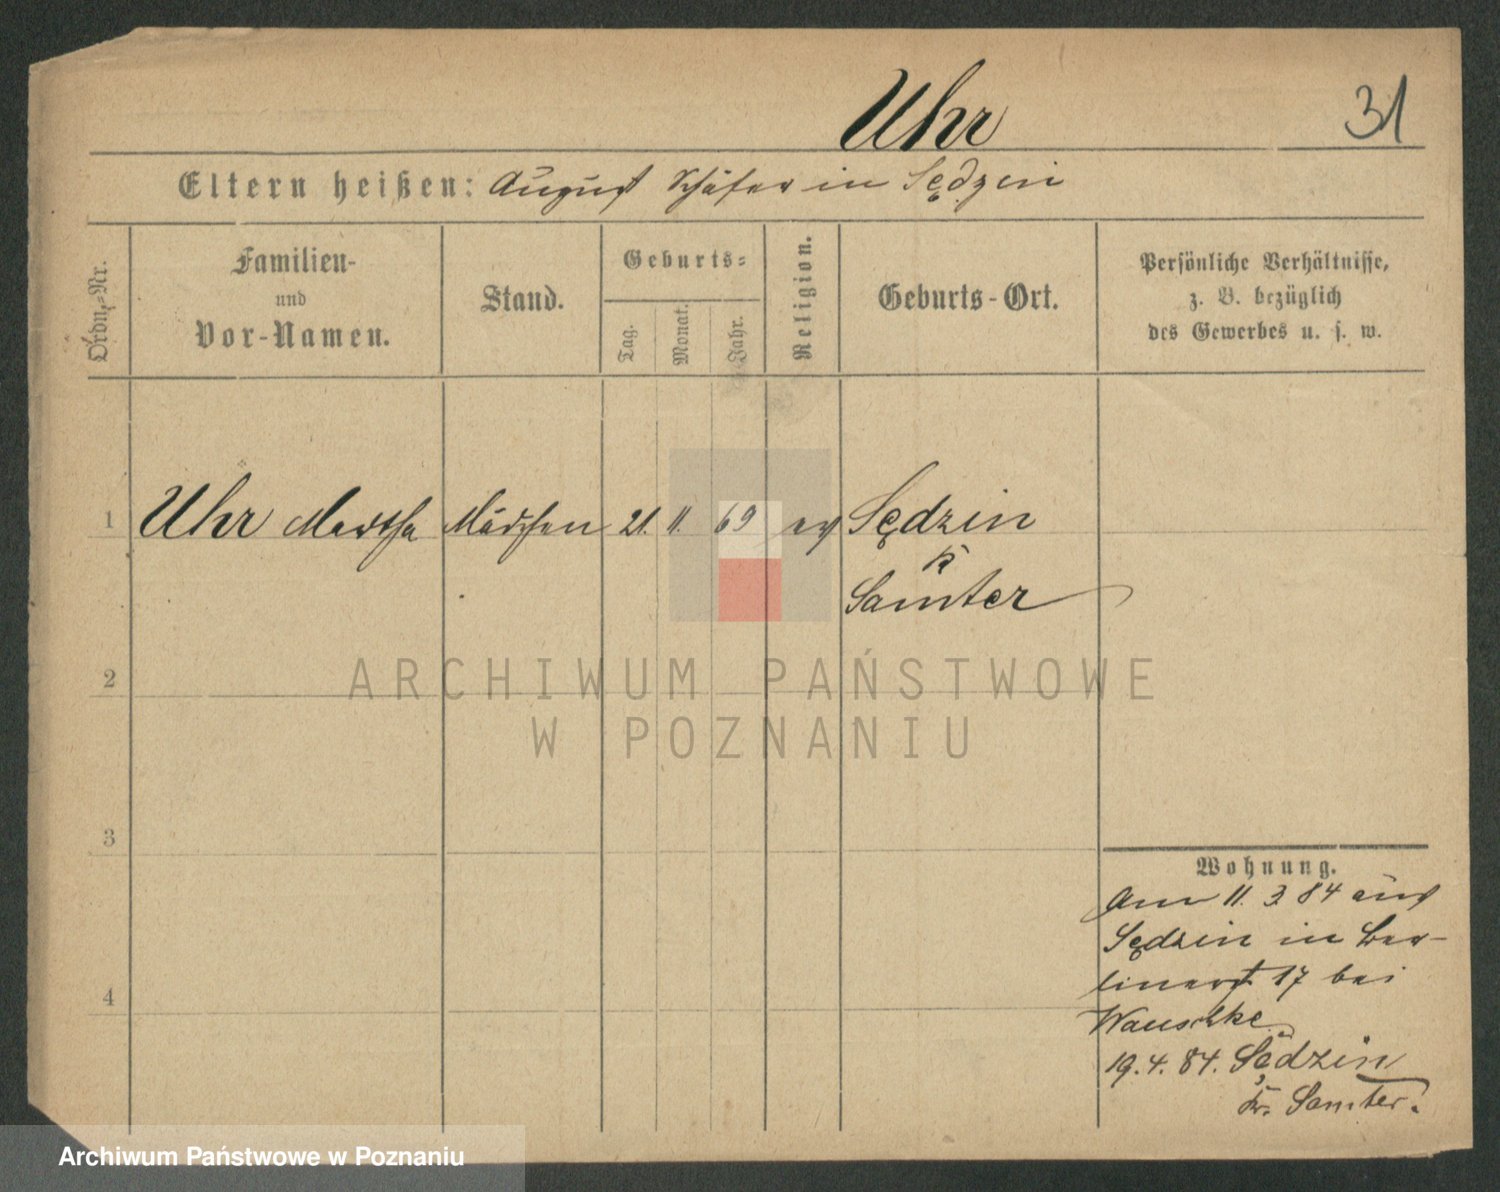 Uhr
31
Eltern heißen: August Schäfer in Sędzin
Ordn.=Nr.
Familien-
und
Vor-Namen.
Stand.
Geburts=
Tag.
Monat.
Jahr.
Religion.
Geburts-Ort.
Persönliche Verhältnisse,
z. B. bezüglich
des Gewerbes u. s. w.
1 Uhr Martha Mädchen 21. 11. 69 ev Sędzin
K
Samter
ARCHIWUM PAŃSTWOWE
W POZNANIU
2
3
4
Wohnung.
Am 11. 3 84 aus
Sędzin in Ber-
linerst 17 bei
Wauschke
19. 4. 84. Sędzin
Kr. Samter.
Archiwum Państwowe w Poznaniu